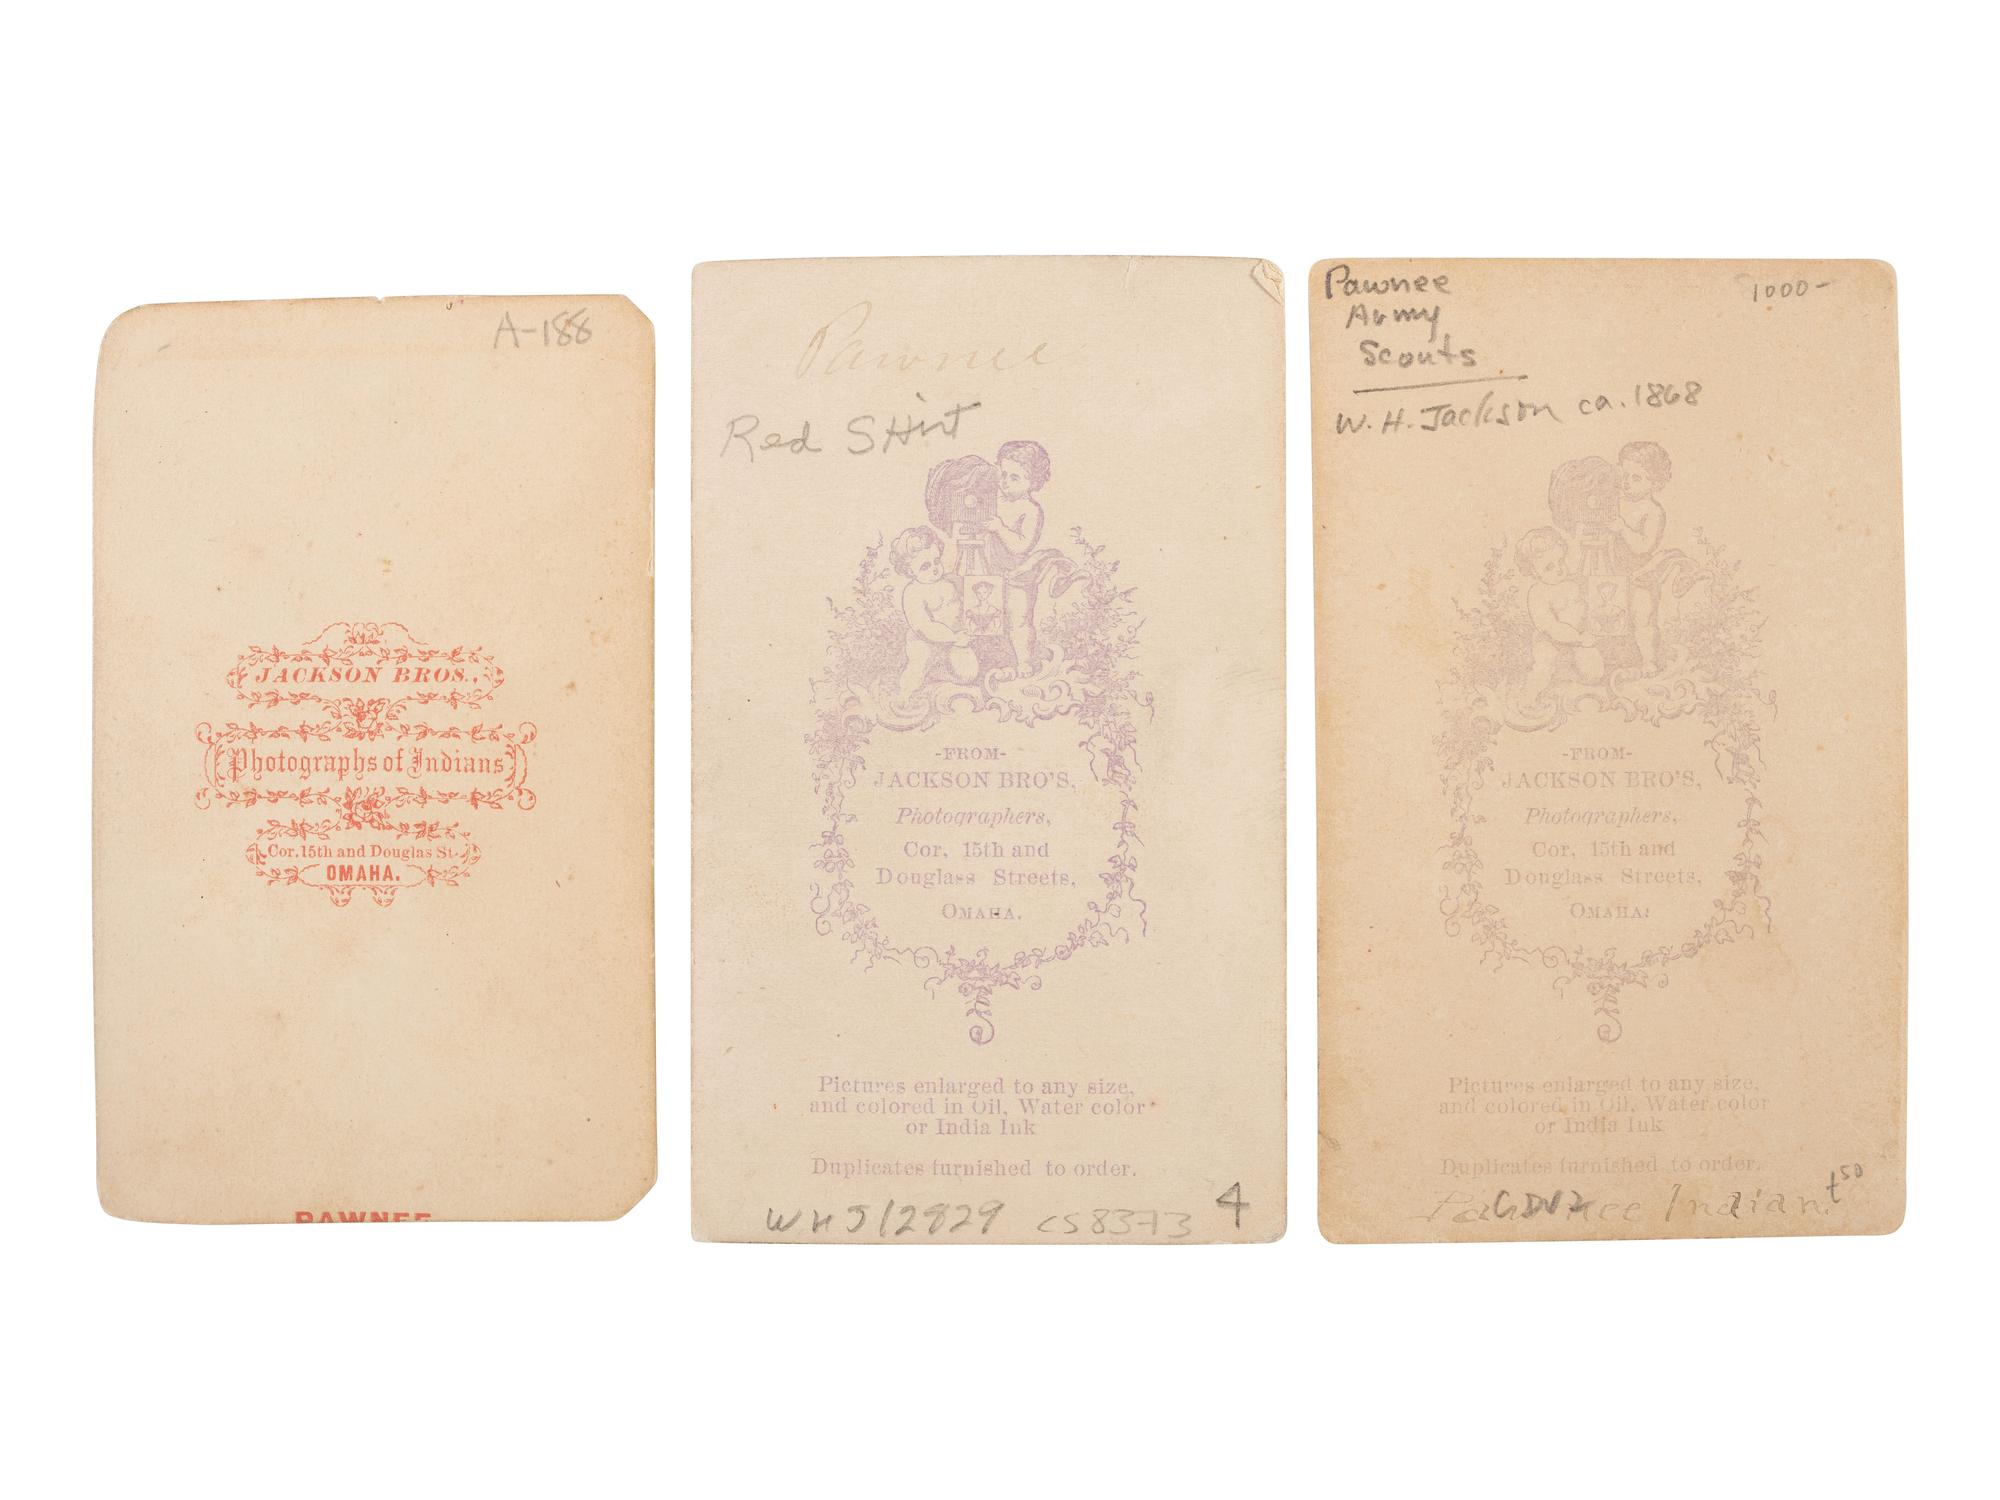 A-188
JACKSON BROS.,
Photographs of Indians
Cor. 15th and Douglas St.
OMAHA.
PAWNEE
Pawnee
Red SHirt
-FROM-
JACKSON BRO'S,
Photographers,
Cor, 15th and
Douglass Streets,
OMAHA.
Pictures enlarged to any size,
and colored in Oil, Water color
or India Ink
Duplicates furnished to order.
4
WHJ12829 CS8373
Pawnee
Army
Scouts
1000-
W. H. Jackson ca. 1868
-FROM-
JACKSON BRO'S,
Photographers,
Cor, 15th and
Douglass Streets,
OMAHA.
Pictures enlarged to any size,
and colored in Oil, Water color
or India Ink
Duplicates furnished to order.
t50
Pawnee Indian